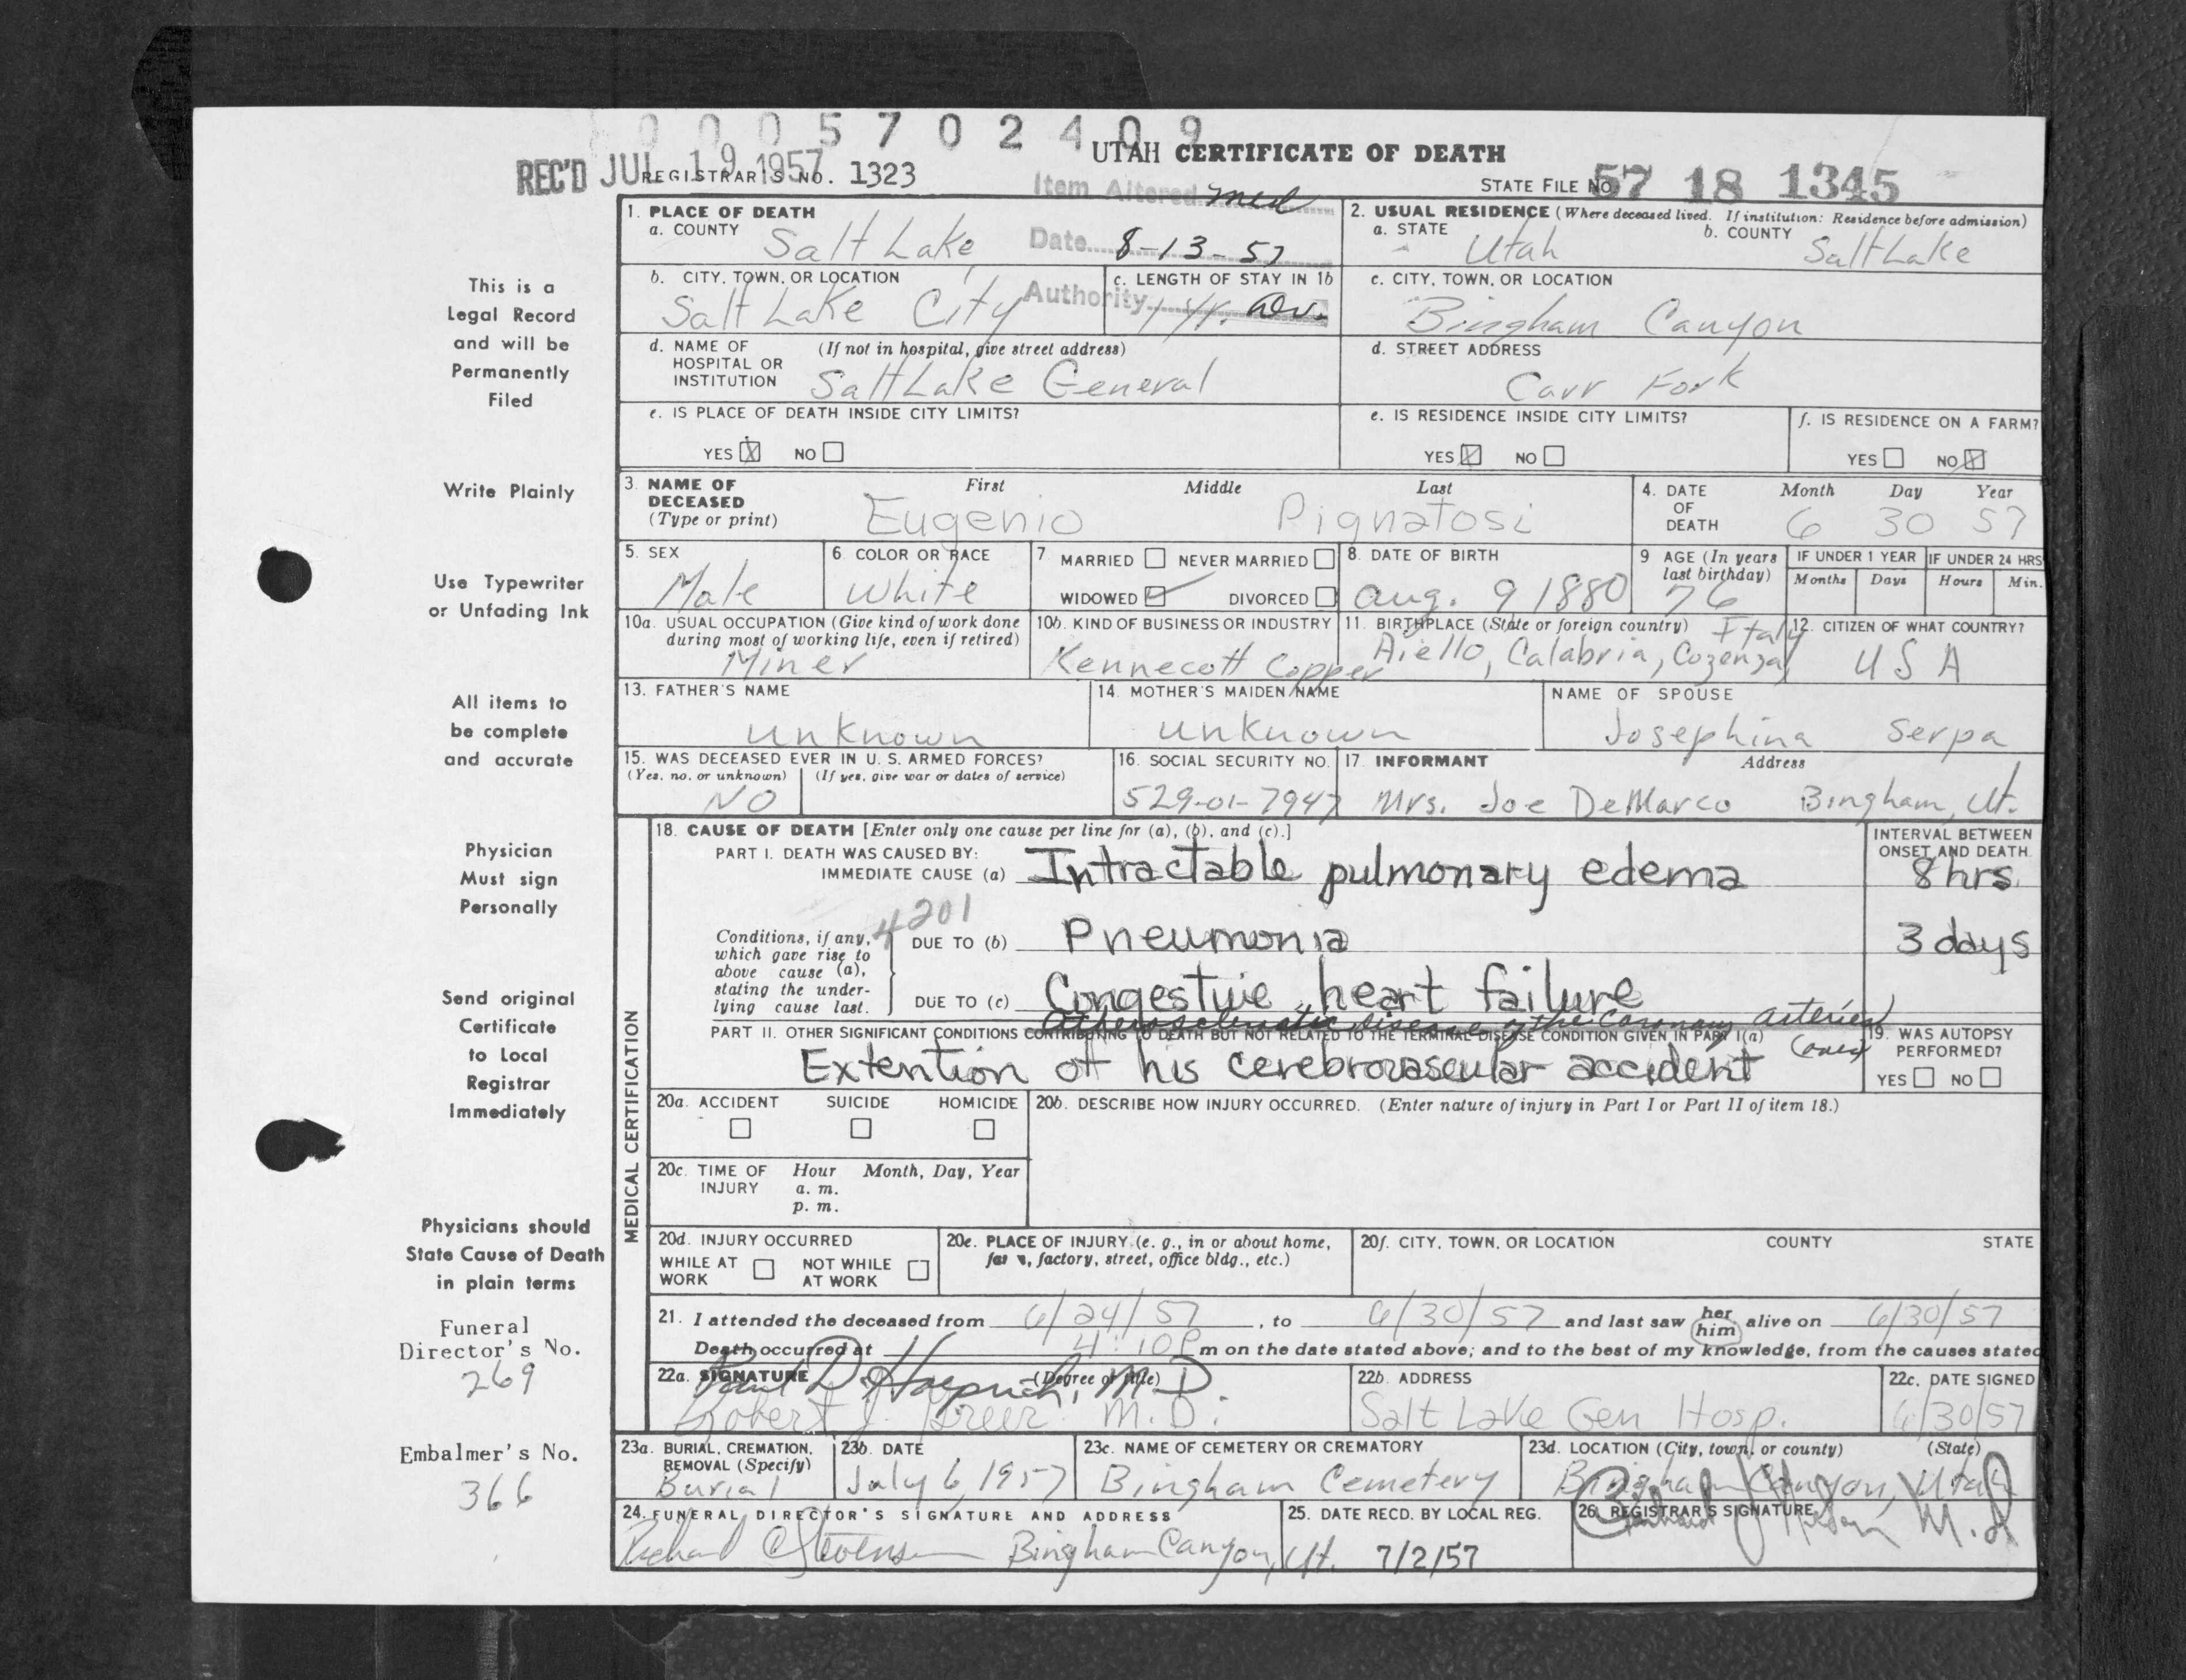 0 0 0 5 7 0 2 4 0 9
REC'D JUL 19 1957
REGISTRAR'S NO. 1323
UTAH CERTIFICATE OF DEATH
STATE FILE NO. 57 18 1345
Item Altered med
Date 8-13-57
Authority
This is a
Legal Record
and will be
Permanently
Filed
Write Plainly
Use Typewriter
or Unfading Ink
All items to
be complete
and accurate
Physician
Must sign
Personally
Send original
Certificate
to Local
Registrar
Immediately
Physicians should
State Cause of Death
in plain terms
Funeral
Director's No.
269
Embalmer's No.
366
1. PLACE OF DEATH
a. COUNTY Salt Lake
2. USUAL RESIDENCE (Where deceased lived. If institution: Residence before admission)
a. STATE Utah b. COUNTY Salt Lake
b. CITY, TOWN, OR LOCATION Salt Lake City
c. LENGTH OF STAY IN 1b
c. CITY, TOWN, OR LOCATION Bingham Canyon
d. NAME OF HOSPITAL OR INSTITUTION (If not in hospital, give street address) Salt Lake General
d. STREET ADDRESS Carr Fork
e. IS PLACE OF DEATH INSIDE CITY LIMITS?
YES X NO
e. IS RESIDENCE INSIDE CITY LIMITS?
YES X NO
f. IS RESIDENCE ON A FARM?
YES NO X
3. NAME OF DECEASED (Type or print)
First Middle Last
Eugenio Pignatosi
4. DATE OF DEATH Month Day Year
6 30 57
5. SEX Male
6. COLOR OR RACE White
7 MARRIED NEVER MARRIED
WIDOWED ✓ DIVORCED
8. DATE OF BIRTH Aug. 9 1880
9 AGE (In years last birthday) 76
IF UNDER 1 YEAR Months Days
IF UNDER 24 HRS Hours Min.
10a. USUAL OCCUPATION (Give kind of work done during most of working life, even if retired) Miner
10b. KIND OF BUSINESS OR INDUSTRY Kennecott Copper
11. BIRTHPLACE (State or foreign country) Aiello, Calabria, Cozenza, Italy
12. CITIZEN OF WHAT COUNTRY? USA
13. FATHER'S NAME unknown
14. MOTHER'S MAIDEN NAME unknown
NAME OF SPOUSE Josephina Serpa
15. WAS DECEASED EVER IN U. S. ARMED FORCES?
(Yes, no, or unknown) (If yes, give war or dates of service)
NO
16. SOCIAL SECURITY NO. 529-01-7947
17. INFORMANT Address
Mrs. Joe DeMarco Bingham, Ut.
MEDICAL CERTIFICATION
18. CAUSE OF DEATH [Enter only one cause per line for (a), (b), and (c).]
INTERVAL BETWEEN ONSET AND DEATH
PART I. DEATH WAS CAUSED BY:
IMMEDIATE CAUSE (a) Intractable pulmonary edema 8 hrs
4201
Conditions, if any, which gave rise to above cause (a), stating the underlying cause last.
DUE TO (b) Pneumonia 3 days
DUE TO (c) Congestive heart failure
Atherosclerotic disease of the coronary arteries
PART II. OTHER SIGNIFICANT CONDITIONS CONTRIBUTING TO DEATH BUT NOT RELATED TO THE TERMINAL DISEASE CONDITION GIVEN IN PART I(a)
Extention of his cerebrovascular accident
19. WAS AUTOPSY PERFORMED?
YES NO
20a. ACCIDENT SUICIDE HOMICIDE
20b. DESCRIBE HOW INJURY OCCURRED. (Enter nature of injury in Part I or Part II of item 18.)
20c. TIME OF INJURY Hour Month, Day, Year
a. m.
p. m.
20d. INJURY OCCURRED
WHILE AT WORK NOT WHILE AT WORK
20e. PLACE OF INJURY (e. g., in or about home, farm, factory, street, office bldg., etc.)
20f. CITY, TOWN, OR LOCATION COUNTY STATE
21. I attended the deceased from 6/24/57, to 6/30/57 and last saw her him alive on 6/30/57
Death occurred at 4:10 P m on the date stated above; and to the best of my knowledge, from the causes stated
22a. SIGNATURE (Degree or title)
Paul D. Hoeprich, M.D.
Robert J. M.D.
22b. ADDRESS Salt Lake Gen Hosp.
22c. DATE SIGNED 6/30/57
23a. BURIAL, CREMATION, REMOVAL (Specify) Burial
23b. DATE July 6, 1957
23c. NAME OF CEMETERY OR CREMATORY Bingham Cemetery
23d. LOCATION (City, town, or county) (State) Bingham Canyon, Utah
24. FUNERAL DIRECTOR'S SIGNATURE AND ADDRESS
Richard C Stevensen Bingham Canyon, Ut.
25. DATE RECD. BY LOCAL REG. 7/2/57
26. REGISTRAR'S SIGNATURE
M.D